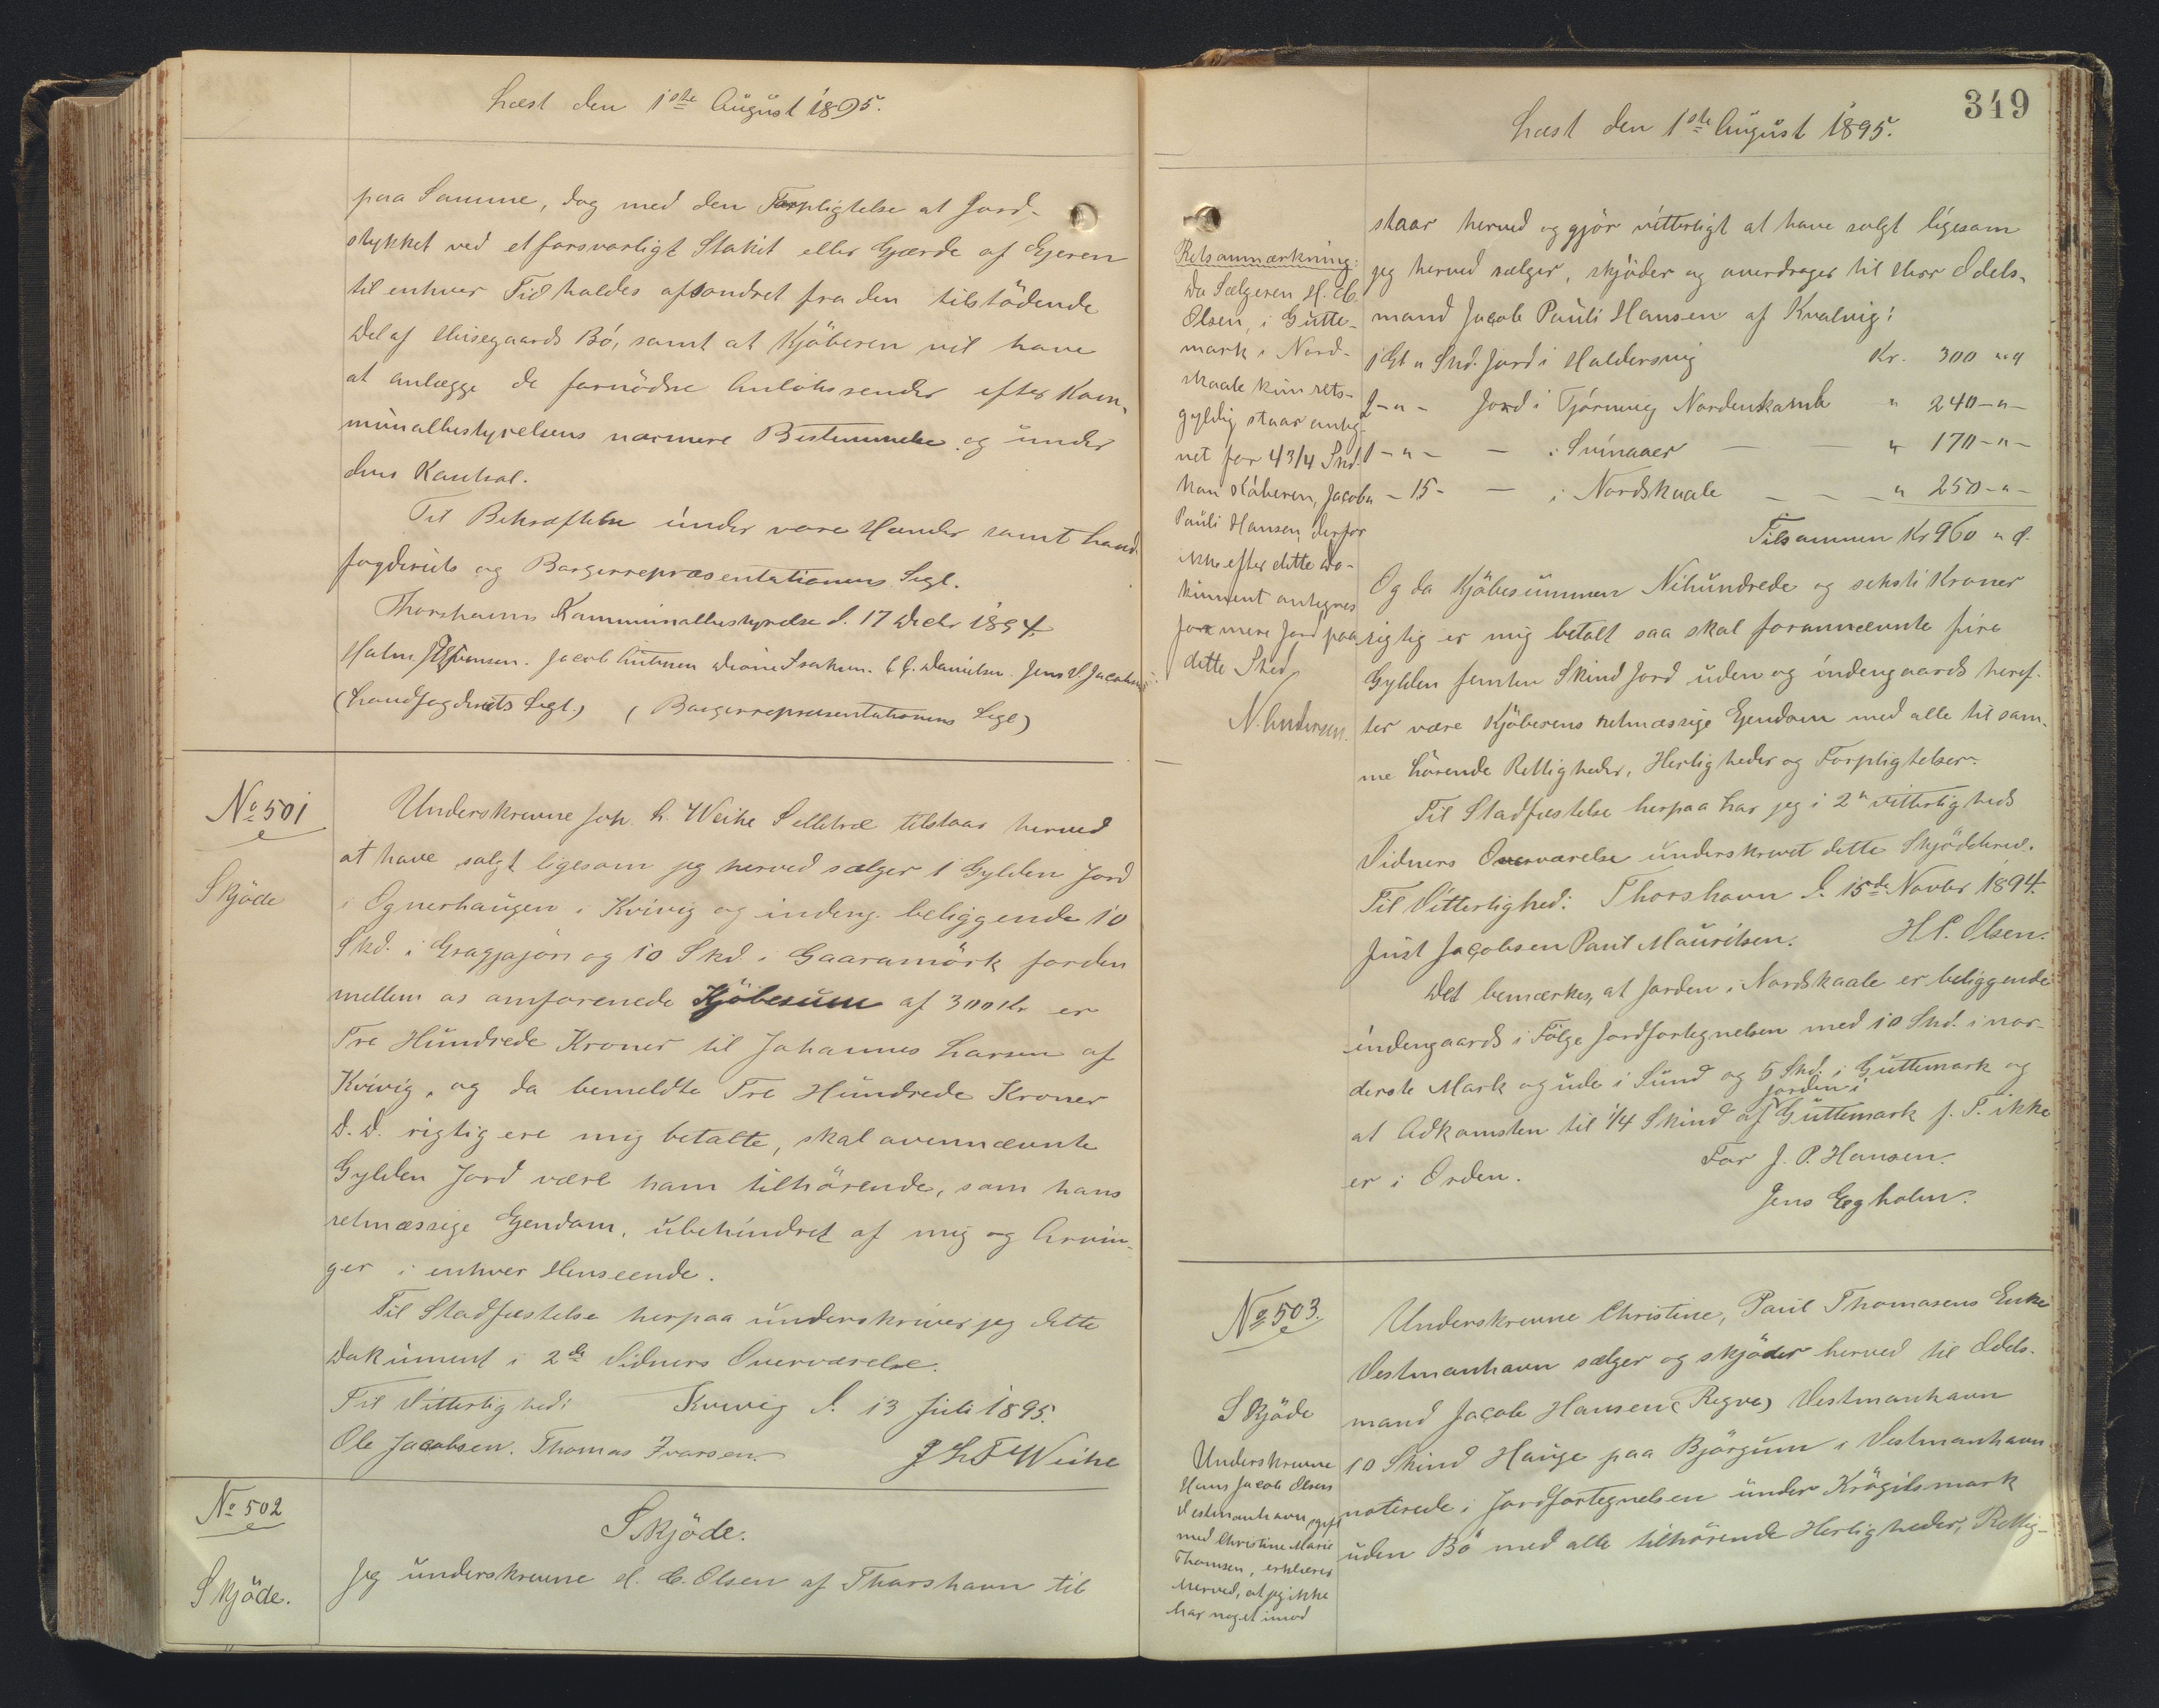 Læst den 1ste August 1895.
paa Samme, dog med den Forpligtelse at Jord-
stykket ved et forsvarligt Stakit eller Gjærde af Ejeren
til enhver Tid holdes afsondret fra den tilstödende
Del af Husegaards Bö, samt at Kjöberen vil have
at anlægge de fornödne Aflöbsrender efter Kom-
munalbestyrelsens nærmere Bestemmelse og under
dens Kontrol.
Til Bekræftelse under vore Hænder samt Land-
fogderiets og Borgerrepræsentationens Segl.
Thorshavns Kommunalbestyrelse d. 17 Decbr 1894.
Jacob Lützen Danielsen. Jens Jacobsen
(Landfogderiets Segl.) (Borgerrepræsentationens Segl)
No 501
Skjöde
Underskrevne Joh. h. Weihe Selletræ tilstaar herved
at have solgt ligesom jeg herved sælger 1 Gylden Jord
i Ognerhaugen i Kvivig og indeng. beliggende 10
Skd. i Gragjajörn og 10 Skd. i Gaaramörk for den
mellem os omforenede Kjöbesum af 300 Kr er
Tre Hundrede Kroner til Johannes Larsen af
Kvivig, og da bemeldte Tre Hundrede Kroner
D.D. rigtig ere mig betalte, skal ovennævnte
Gylden Jord være ham tilhörende, som hans
retmæssige Ejendom, ubehindret af mig og Arvin-
ger i enhver Henseende.
Til Stadfæstelse herpaa underskriver jeg dette
Dokument i 2de Vidners Overværelse.
Til Vitterlighed: Kvivig d. 13 Juli 1895.
Ole Jacobsen. Thomas Ivarsen. J h F Weihe
No 502
Skjöde.
Skjöde.
Jeg underskrevne H. C. Olsen af Thorshavn til
349
Læst den 1ste August 1895.
staar herved og gjör vitterligt at have solgt ligesom
jeg herved sælger, skjöder og overdrager til Herr Odels-
mand Jacob Pauli Hansen af Kvalvig:
1 Gl. " Skd. Jord i Haldersvig Kr. 300 " "
2 - " - Jord i Tjörnevig Nordenkamb " 240 - " -
1 - " - — i Svinaaer — — " 170 - " -
" - 15 - — i Nordskaale — — " 250 - " -
Tilsammen Kr 960 " Ø.
Og da Kjöbesummen Nihundrede og seksti Kroner
rigtig er mig betalt saa skal forannævnte fire
Gylden femten Skind Jord uden og indengaards heref-
ter være Kjöberens retmæssige Ejendom med alle til sam-
me hörende Rettigheder, Herligheder og Forpligtelser.
Til Stadfæstelse herpaa har jeg i 2de Vitterligheds
Vidners Overværelse underskrevet dette Skjödebrev.
Til Vitterlighed: Thorshavn d. 15de Novbr 1894.
Just Jacobsen Paul Mauritsen. H. C. Olsen.
Det bemærkes, at Jorden i Nordskaale er beliggende
indengaards i Fölge Jordfortegnelsen med 10 Skd. i nor-
derste Mark og ude i Sund og 5 Skd. i Guttemark og
at Adkomsten til 1/4 Skind af Jorden i Guttemark f. T. ikke
er i Orden.
For J. P. Hansen.
Jens Eegholm.
Retsanmærkning:
Da Sælgeren H. C.
Olsen, i Gutte-
mark i Nord-
skaale kun rets-
gyldig staar anteg-
net for 4 3/4 Skd.
kan Köberen, Jacob
Pauli Hansen, derfor
ikke efter dette Do-
kument antegnes
for mere Jord paa
dette Sted.
N. Andersen.
No 503.
Skjöde
Underskrevne Christine, Paul Thomasens Enke
Vestmanhavn sælger og skjöder herved til Odels-
mand Jacob Hansen (Regve) Vestmanhavn
10 Skind Hauge paa Björgum i Vestmanhavn
noterede i Jordfortegnelsen under Krögilsmark
uden Bö med alle tilhörende Herligheder, Rettig-
Underskrevne
Hans Jacob Olsen
Vestmanhavn, gift
med Christine Marie
Thomsen, erklærer
herved, at jeg ikke
har noget imod